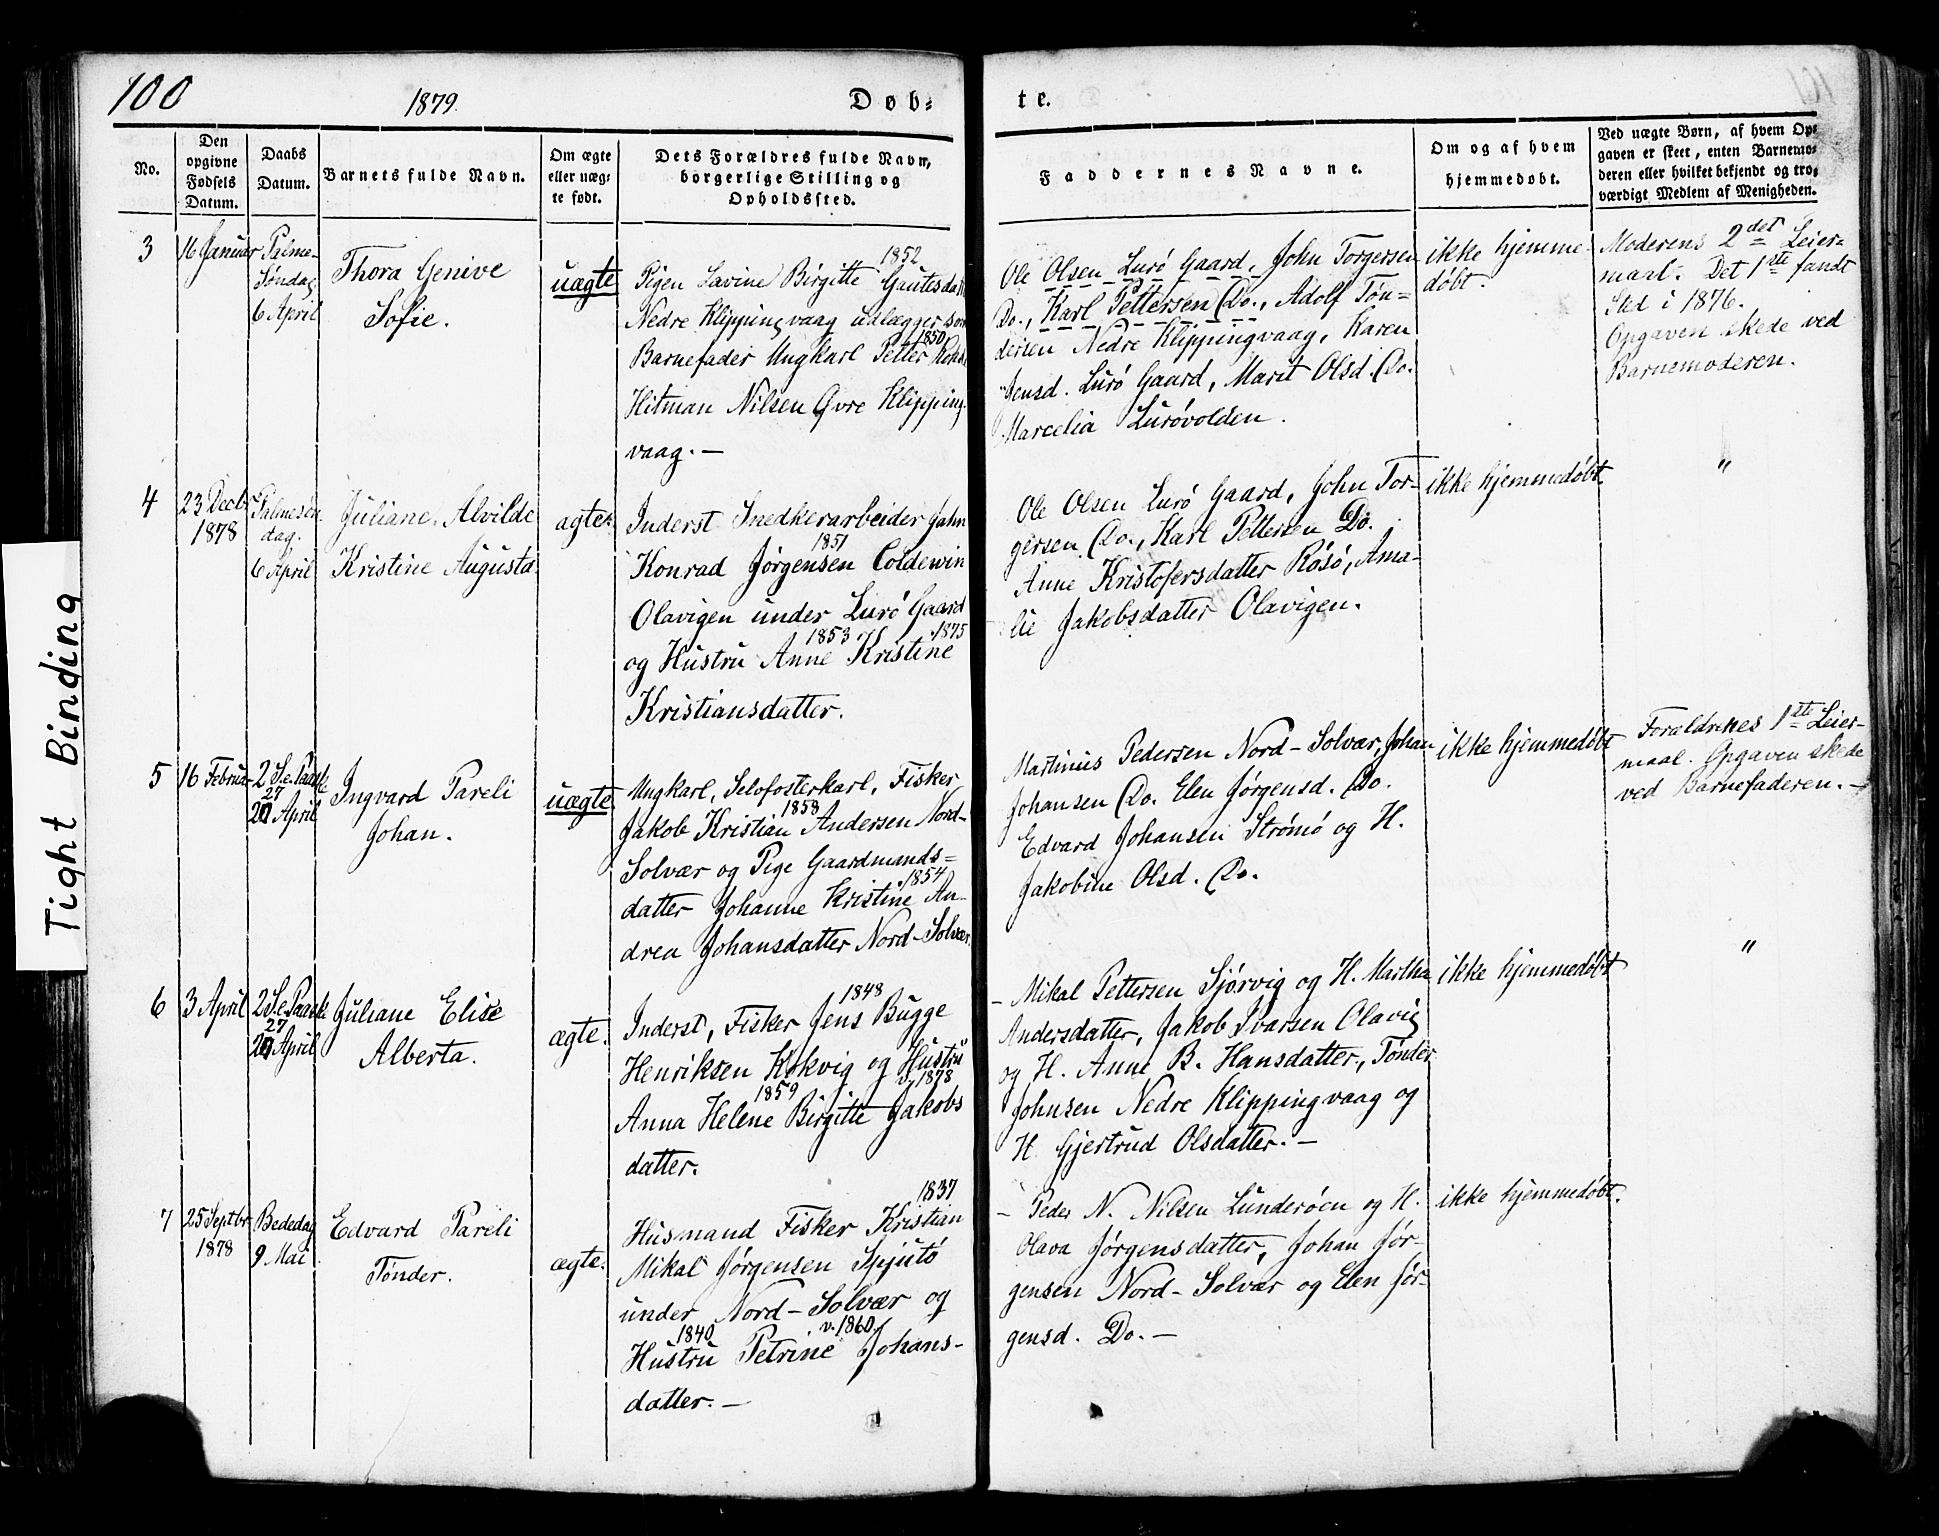 100
1879.
Døb-
te.
No.
Den
opgivne
Fødsels
Datum.
Daabs
Datum.
Barnets fulde Navn.
Om ægte
eller uæg-
te født.
Dets Forældres fulde Navn,
borgerlige Stilling og
Opholdssted.
Faddernes Navne.
Om og af hvem
hjemmedøbt.
Ved uægte Børn, af hvem Op-
gaven er skeet, enten Barnemo-
deren eller hvilket bekjendt og tro-
værdigt Medlem af Menigheden.
3
16 Januar
Palme-
Søndag
6 April
Thora Genive
Sofie.
uægte
1852
Pigen Lavine Birgitte Gautesdatt
Nedre Klippingvaag udlægger som
1850
Barnefader Ungkarl Petter
Hitman Nilsen Øvre Klipping-
vaag. —
Ole Olsen Lurø Gaard, John Torgersen
Do., Karl Pettersen Do., Adolf Tøn-
dersen Nedre Klippingvaag, Karen
Jensd. Lurø Gaard, Marit Olsd. Do.
Marcelia Lurøvolden.
ikke hjemme-
døbt.
Moderens 2det Leier-
maal. Det 1ste fandt
Sted i 1876.
Opgaven skede ved
Barnemoderen.
4
23 Decbr
1878
Palmesøn-
dag.
6 April
Juliane Alvilde
Kristine Augusta.
ægte.
Inderst Snedkerarbeider Jahn
1851
Konrad Jørgensen Coldewin
Olavigen under Lurø Gaard
1853 1875
og Hustru Anne Kristine
Kristiansdatter.
Ole Olsen Lurø Gaard, John Tor-
gersen Do., Karl Pettersen Do.
Anne Kristofersdatter Røsø, Ama-
lie Jakobsdatter Olavigen.
ikke hjemmedøbt.
"
5
16 Februar
2 S. e. Paaske
27
April
Ingvard Pareli
Johan.
uægte
Ungkarl, Selofosterkarl, Fisker
1858
Jakob Kristian Andersen Nord-
Solvær og Pige Gaardmands-
1854
datter Johanne Kristine An-
drea Johansdatter Nord-Solvær.
Martinus Pedersen Nord-Solvær, Johan
Johansen Do. Elen Jørgensd. Do.
Edvard Johansen Strømø og H.
Jakobine Olsd. Do.
ikke hjemmedøbt
Forældrenes 1ste Leier-
maal. Opgaven skede
ved Barnefaderen. —
6
3 April
2 S. e. Paaske
27
April
Juliane Elise
Alberta.
ægte.
1848
Inderst, Fisker Jens Bugge
Henriksen Kokvig og Hustru
1859 v. 1878
Anna Helene Birgitte Jakobs
datter.
- Mikal Pettersen Sjørvig og H. Martha
Andersdatter, Jakob Ivarsen Olavig
og H. Anne B. Hansdatter, Tønder
Johnsen Nedre Klippingvaag og
H. Gjertrud Olsdatter. —
ikke hjemmedøbt
"
7
25 Septbr
1878
Bededag
9 Mai
Edvard Pareli
Tønder.
ægte.
1837
Husmand Fisker Kristian
Mikal Jørgensen Spjutø
under Nord-Solvær og
1840 v. 1860
Hustru Petrine Johans-
datter. —
- Peder N. Nilsen Lunderøen og H.
Olava Jørgensdatter, Johan Jør-
gensen Nord-Solvær og Elen Jør-
gensd. Do. —
ikke hjemmedøbt.
Tight Binding